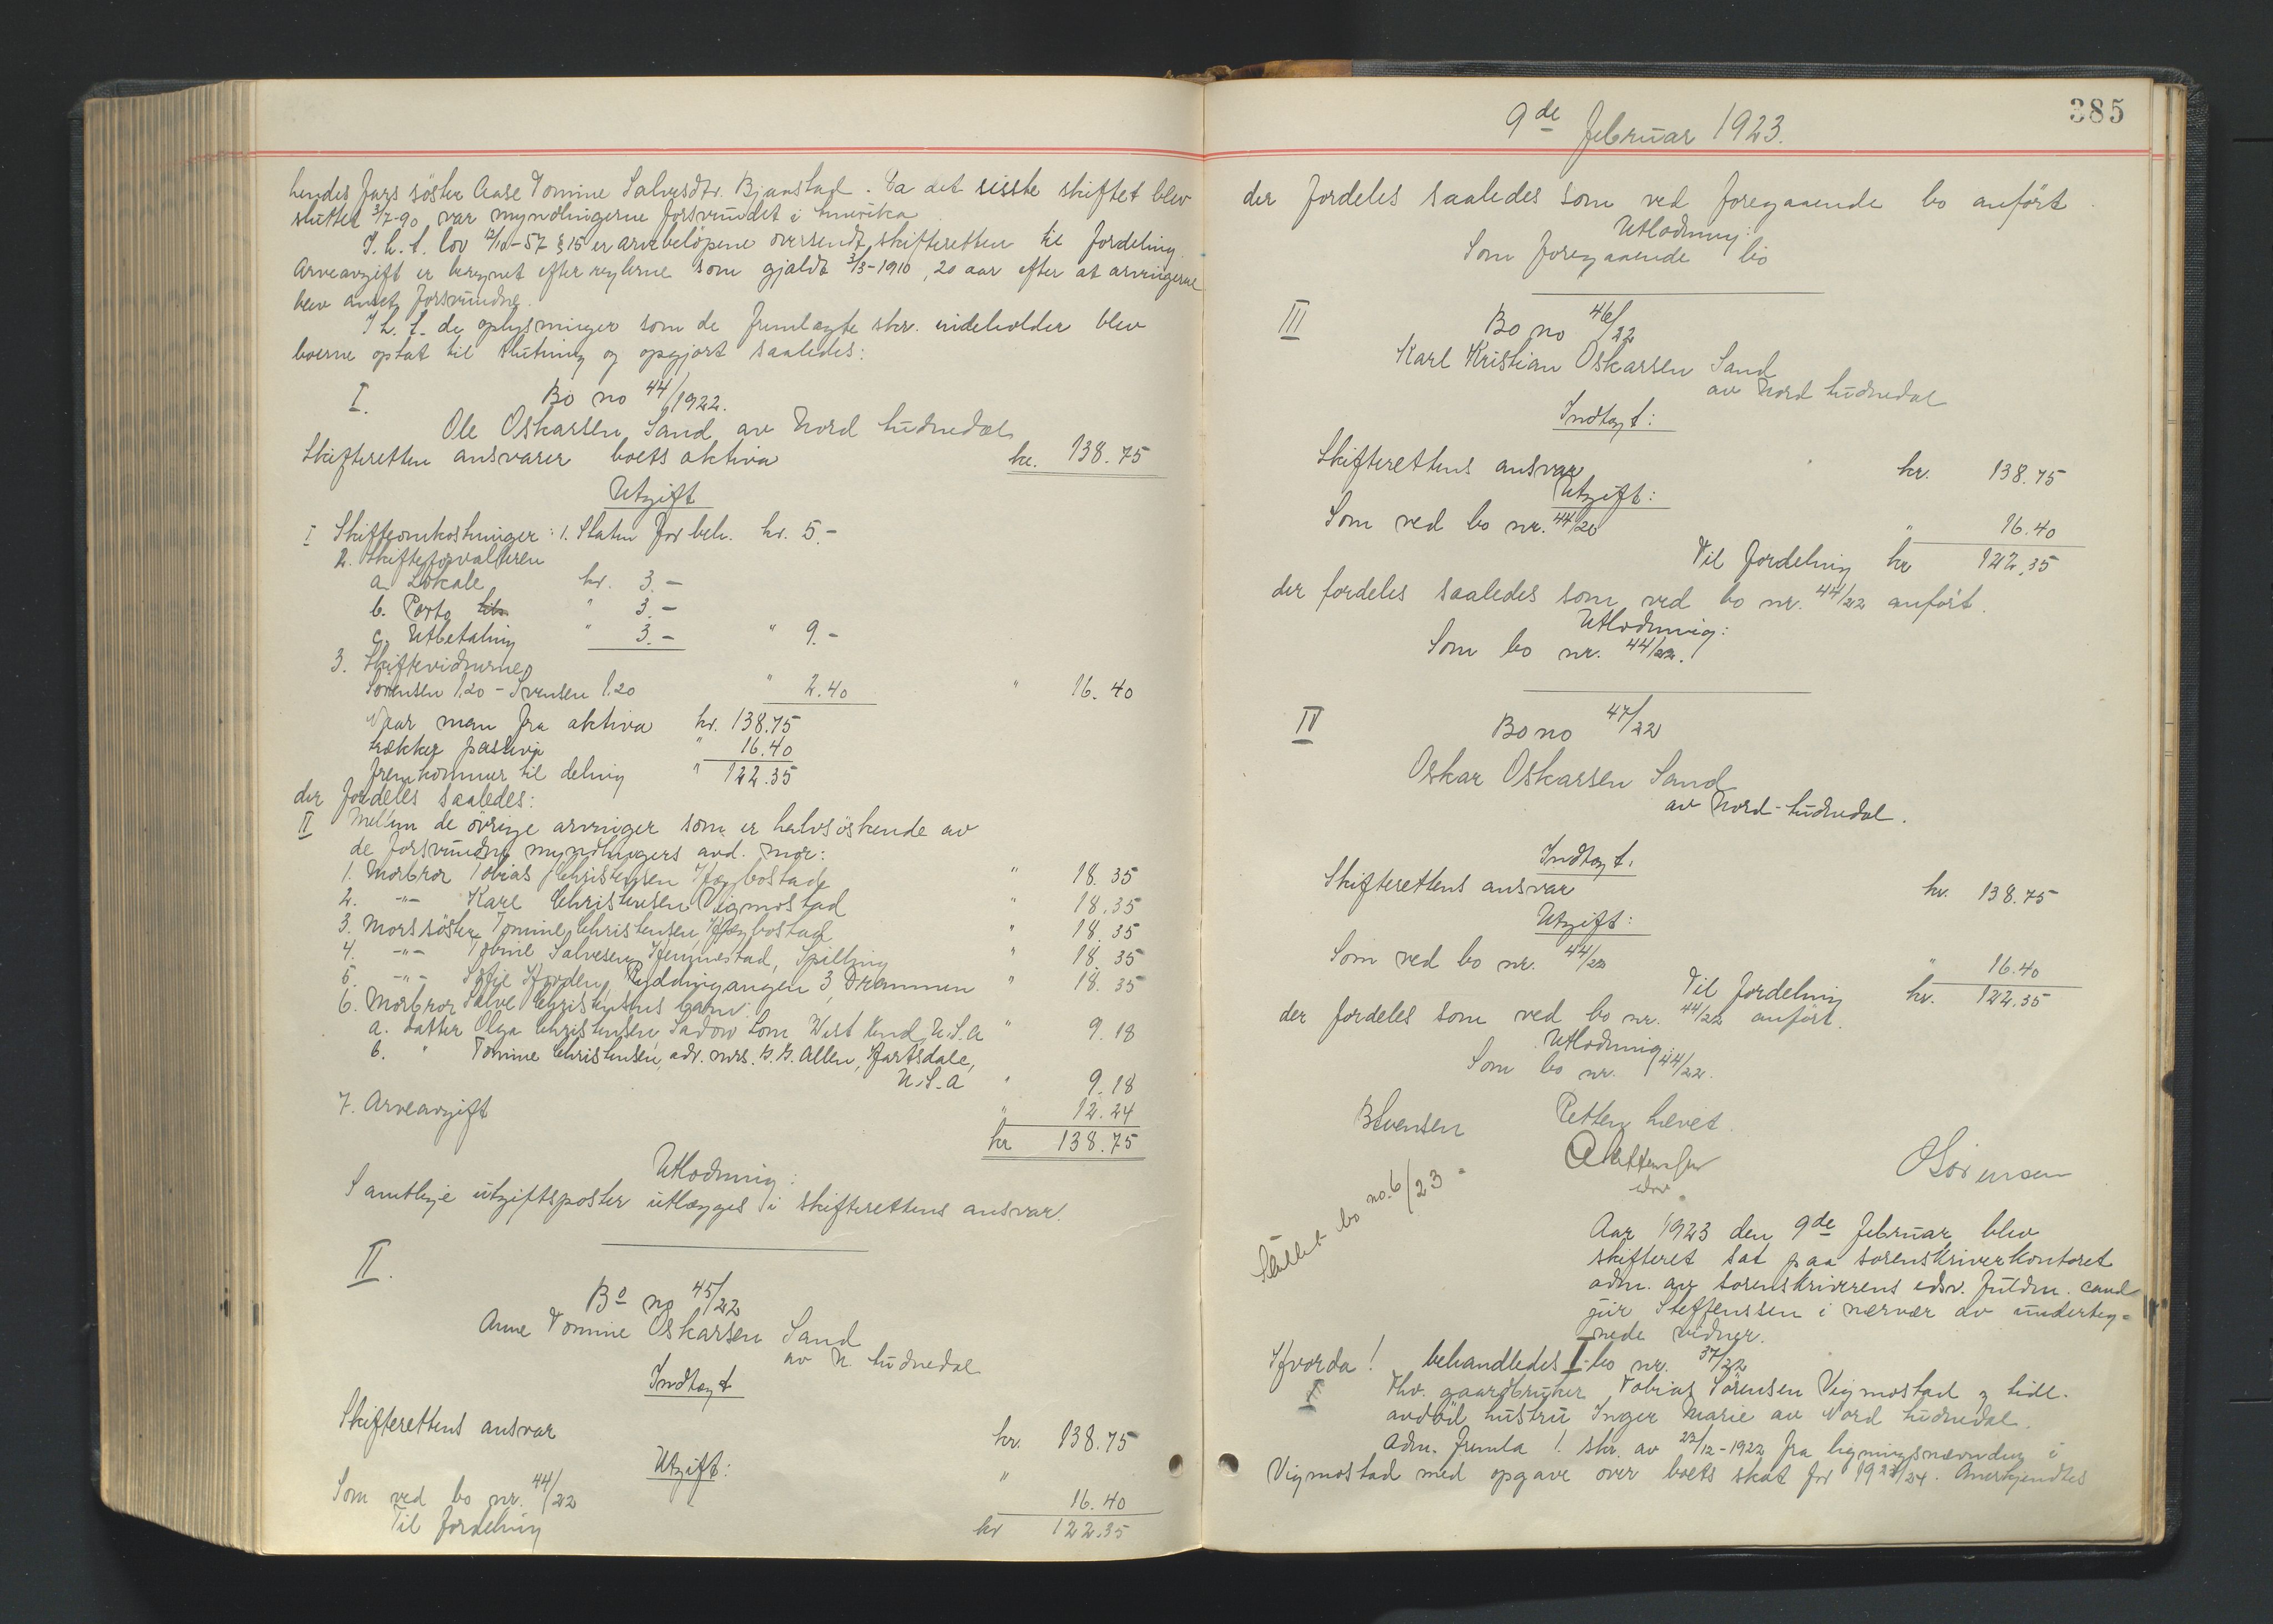 hendes fars söster Aase Tomine Salvesdtr. Bjaastad. Da det sisste skiftet blev
sluttet 3/7-90 var myndlingerne forsvundet i Amerika
I. h. t. lov 12/10-57 § 15 er arvebelöpene oversendt skifteretten til fordeling.
Arveavgift er beregnet efter reglerne som gjaldt 3/3-1910, 20 aar efter at arvingerne
blev anset forsvundne.
I h. t. de oplysninger som de fremlagte skr. indeholder blev
boerne optat til slutning og opgjort saaledes:
I. Bo no 44/1922.
Ole Oskarsen Sand av Nord Audnedal
Skifteretten ansvarer boets aktiva kr. 138.75
Utgift
I Skifteomkostninger: 1. Staten for beh. kr. 5.-
2. Skifteforvalteren
a. Lokale kr. 3.-
b. Porto " 3.-
c. Utbetaling " 3.- " 9.-
3. Skiftevidnerne
Sörensen 1.20 - Svensen 1.20 " 2.40 " 16.40
Naar man fra aktiva kr. 138.75
trækker passiva " 16.40
fremkommer til deling " 122.35
der fordeles saaledes:
II Mellem de övrige arvinger som er halvsöskende av
de forsvundne myndlingers avd. mor:
1. Morbror Tobias Christensen Hægbostad " 18.35
2. -"- Karl Christensen Vigmostad " 18.35
3. Morssöster Tomine Christensen, Hægbostad " 18.35
4. -"- Tobine Salvesen, Hennestad, Spilling " 18.35
5. -"- Sofie Horden, Ryddingangen 3, Drammen " 18.35
6. Morbror Salve Christensens barn:
a. datter Olga Christensen, Sadow Lom West End, U.S.A " 9.18
b. " Tomine Christensen, adr. mrs. G. G. Allen, Hartsdale,
U.S.A " 9.18
7. Arveavgift " 12.24
kr 138.75
Utlodning:
Samtlige utgiftsposter utlægges i skifterettens ansvar.
II.
Bo no 45/22
Anne Tomine Oskarsen Sand
av N. Audnedal
Indtægt
Skifterettens ansvar kr. 138.75
Utgift:
Som ved bo nr. 44/22 " 16.40
Til fordeling kr 122.35
385
9de februar 1923.
der fordeles saaledes som ved foregaaende bo anfört.
Utlodning:
Som foregaaende bo
III Bo no 46/22
Karl Kristian Oskarsen Sand
av Nord Audnedal
Indtægt:
Skifterettens ansvar kr. 138.75
Utgift:
Som ved bo nr. 44/20 " 16.40
Til fordeling kr 122.35
der fordeles saaledes som ved bo nr. 44/22 anfört.
Utlodning:
Som bo nr. 44/22.
IV Bo no 47/22
Oskar Oskarsen Sand
av Nord-Audnedal.
Indtægt.
Skifterettens ansvar kr. 138.75
Utgift:
Som ved bo nr. 44/22 " 16.40
Til fordeling kr. 122.35
der fordeles som ved bo nr. 44/22 anfört.
Utlodning:
Som bo nr. 44/22.
Retten hevet.
BSvensen
ASteffenssen
edsv.
OSörensen
Sluttet bo no. 6/23
Aar 1923 den 9de februar blev
skifteret sat paa sorenskriverkontoret
adm. av sorenskriverens edsv. fuldm. cand
jur Steffenssen i nærvær av underteg-
nede vidner.
Hvorda! behandledes I bo nr. 37/22
I Fhv. gaardbruker Tobias Sörensen Vigmostad og tidl.
avdöd hustru Inger Marie av Nord Audnedal.
Adm. fremla 1. skr. av 22/12-1922 fra ligningsnævnden i
Vigmostad med opgave over boets skat for 1923/24. Anerkjendtes